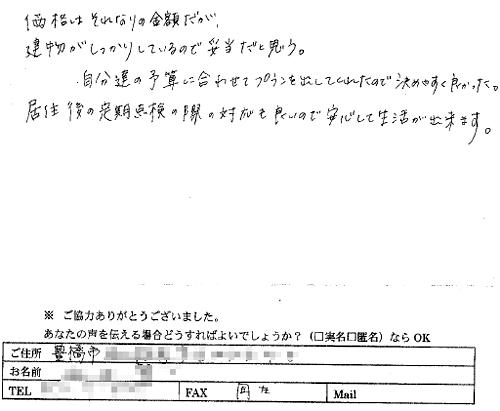 価格はそれなりの金額だが、
建物がしっかりしているので妥当だと思う。
・自分達の予算に合わせてプランを出してくれたので決めやすく良かった。
居住後の定期点検の際の対応も良いので安心して生活が出来ます。
※ ご協力ありがとうございました。
あなたの声を伝える場合どうすればよいでしょうか？（□実名□匿名）なら OK
ご住所 豊橋市
お名前
TEL FAX Mail